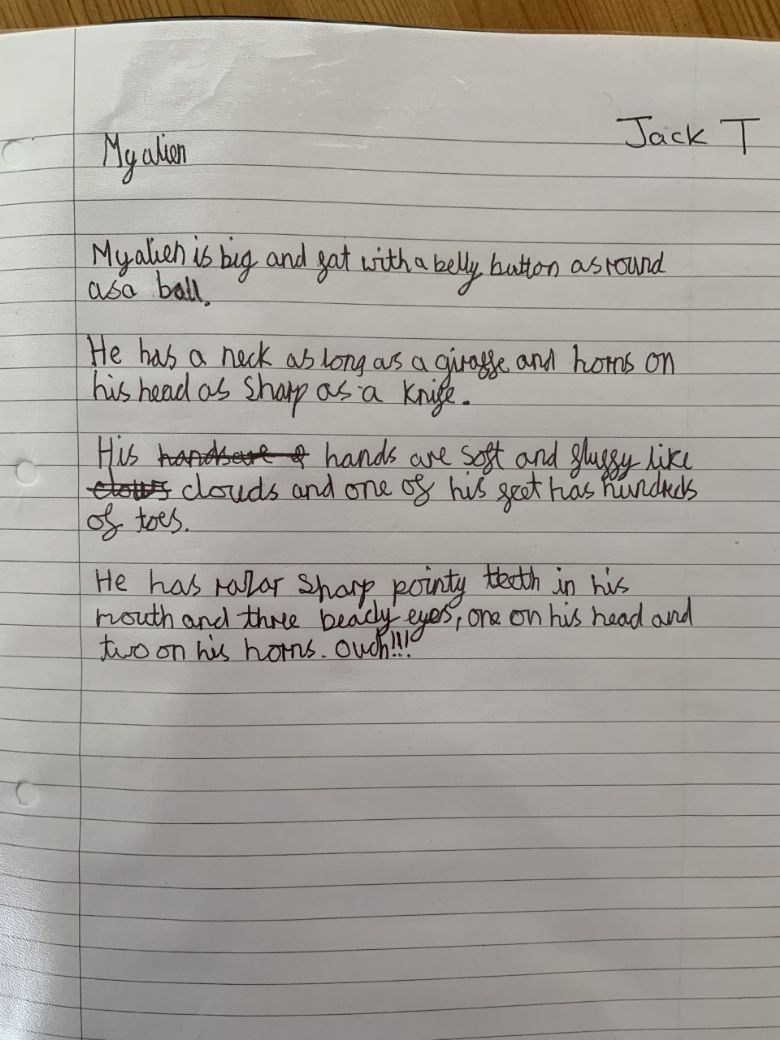 Jack T
My alien
My alien is big and fat with a belly button as round
as a ball.
He has a neck as long as a giraffe and horns on
his head as sharp as a knife.
His handsare f hands are soft and fluffy like
clows clouds and one of his feet has hundreds
of toes.
He has razar sharp pointy teeth in his
mouth and three beady eyes, one on his head and
two on his horns. Ouch!!!